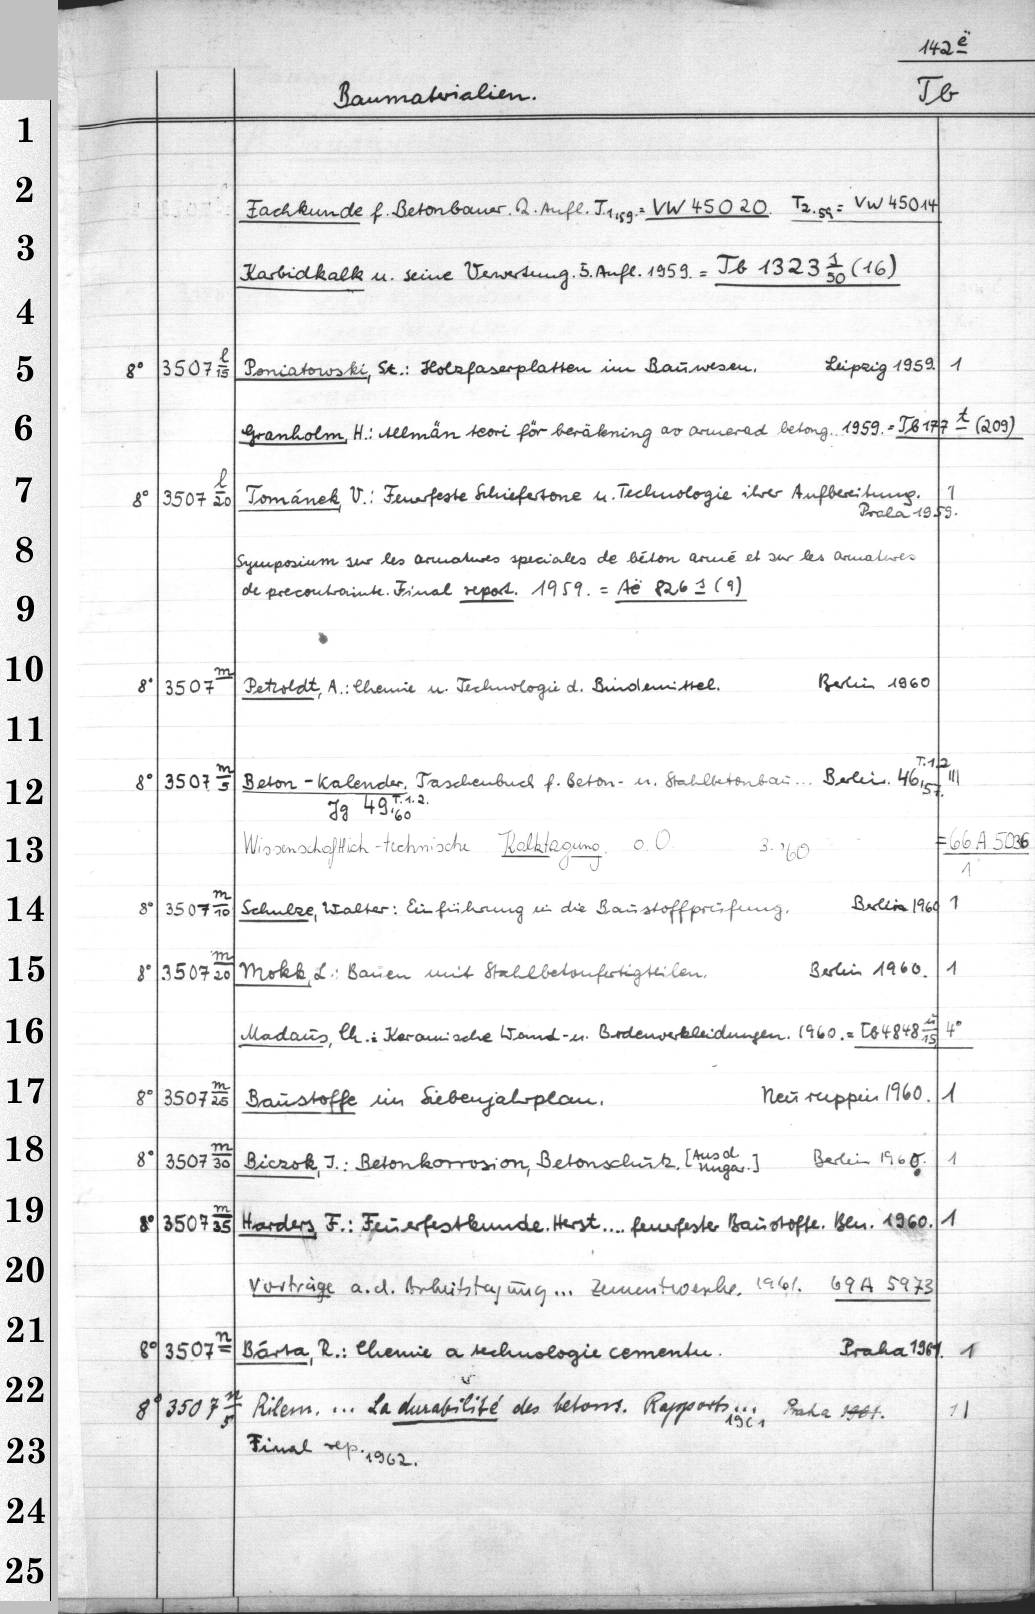 142 ë
Baumaterialien. Tb
1
2 Fachkunde f. Betonbauer. 2. Aufl. T.1,59. = VW 45020. T2.59 = VW 45014
3 Karbidkalk u. seine Verwertung. 5. Aufl. 1959. = Tb 1323 1/30 (16)
4
5 8° 3507 l/15 Poniatowski, St.: Holzfaserplatten im Bauwesen. Leipzig 1959. 1
6 Granholm, H.: Allmän teori för beräkning av armerad betong. 1959. = Tb 177 t (209)
7 8° 3507 l/20 Tománek, V.: Feuerfeste Schiefertone u. Technologie ihrer Aufbereitung. 1
Praha 1959.
8 Symposium sur les armatures speciales de béton armé et sur les armatures
9 de precontrainte. Final report. 1959. = Aë 826 1 (9)
10 8° 3507 m Petzoldt, A.: Chemie u. Technologie d. Bindemittel. Berlin 1960
11
12 8° 3507 m/5 Beton-Kalender. Taschenbuch f. Beton- u. Stahlbetonbau... Berlin. 46,57. T.1.2 III
Jg 49,60 T.1.2.
13 Wissenschaftlich-technische Kalktagung. o.O. 3. '60 = 66 A 5036
1
14 8° 3507 m/10 Schulze, Walter: Einführung in die Baustoffprüfung. Berlin 1960 1
15 8° 3507 m/20 Mokk, L.: Bauen mit Stahlbetonfertigteilen. Berlin 1960. 1
16 Madaus, Ch.: Keramische Wand- u. Bodenverkleidungen. 1960. = Tb 4848 ü/15 4°
17 8° 3507 m/25 Baustoffe im Siebenjahrplan. Neuruppin 1960. 1
18 8° 3507 m/30 Biczok, I.: Betonkorrosion, Betonschutz. [Aus d. Ungar.] Berlin 1960. 1
19 8° 3507 m/35 Harders, F.: Feuerfestkunde. Herst.... feuerfester Baustoffe. Bln. 1960. 1
20 Vorträge a.d. Arbeitstagung... Zementwerke. 1961. 69 A 5973
21 8° 3507 n Bárta, R.: Chemie a technologie cementu. Praha 1961. 1
22 8° 3507 n/5 Rilem. ... La durabilité des betons. Rapports... 1961 Praha 1961. 11
23 Final rep. 1962.
24
25